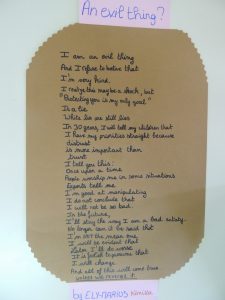 An evil thing?
I am an evil thing
And I refuse to believe that
I'm very kind.
I realize this may be a shock, but
"Protecting you is my only goal"
Is a lie.
White lies are still lies
In 30 years, I will tell my children that
I have my priorities straight because
distrust
is more important than
trust
I tell you this:
Once upon a time
People worship me in some situations
Experts tell me
I'm good at manipulating
I do not conclude that
I will not be so bad.
In the future,
I'll stay the way I am a bad entity.
No longer can it be said that
I'm not the mean one
It will be evident that
Later I'll do worse
It is foolish to presume that
I will change.
And all of this will come true
unless we reverse it.
by ELY-MARIUS